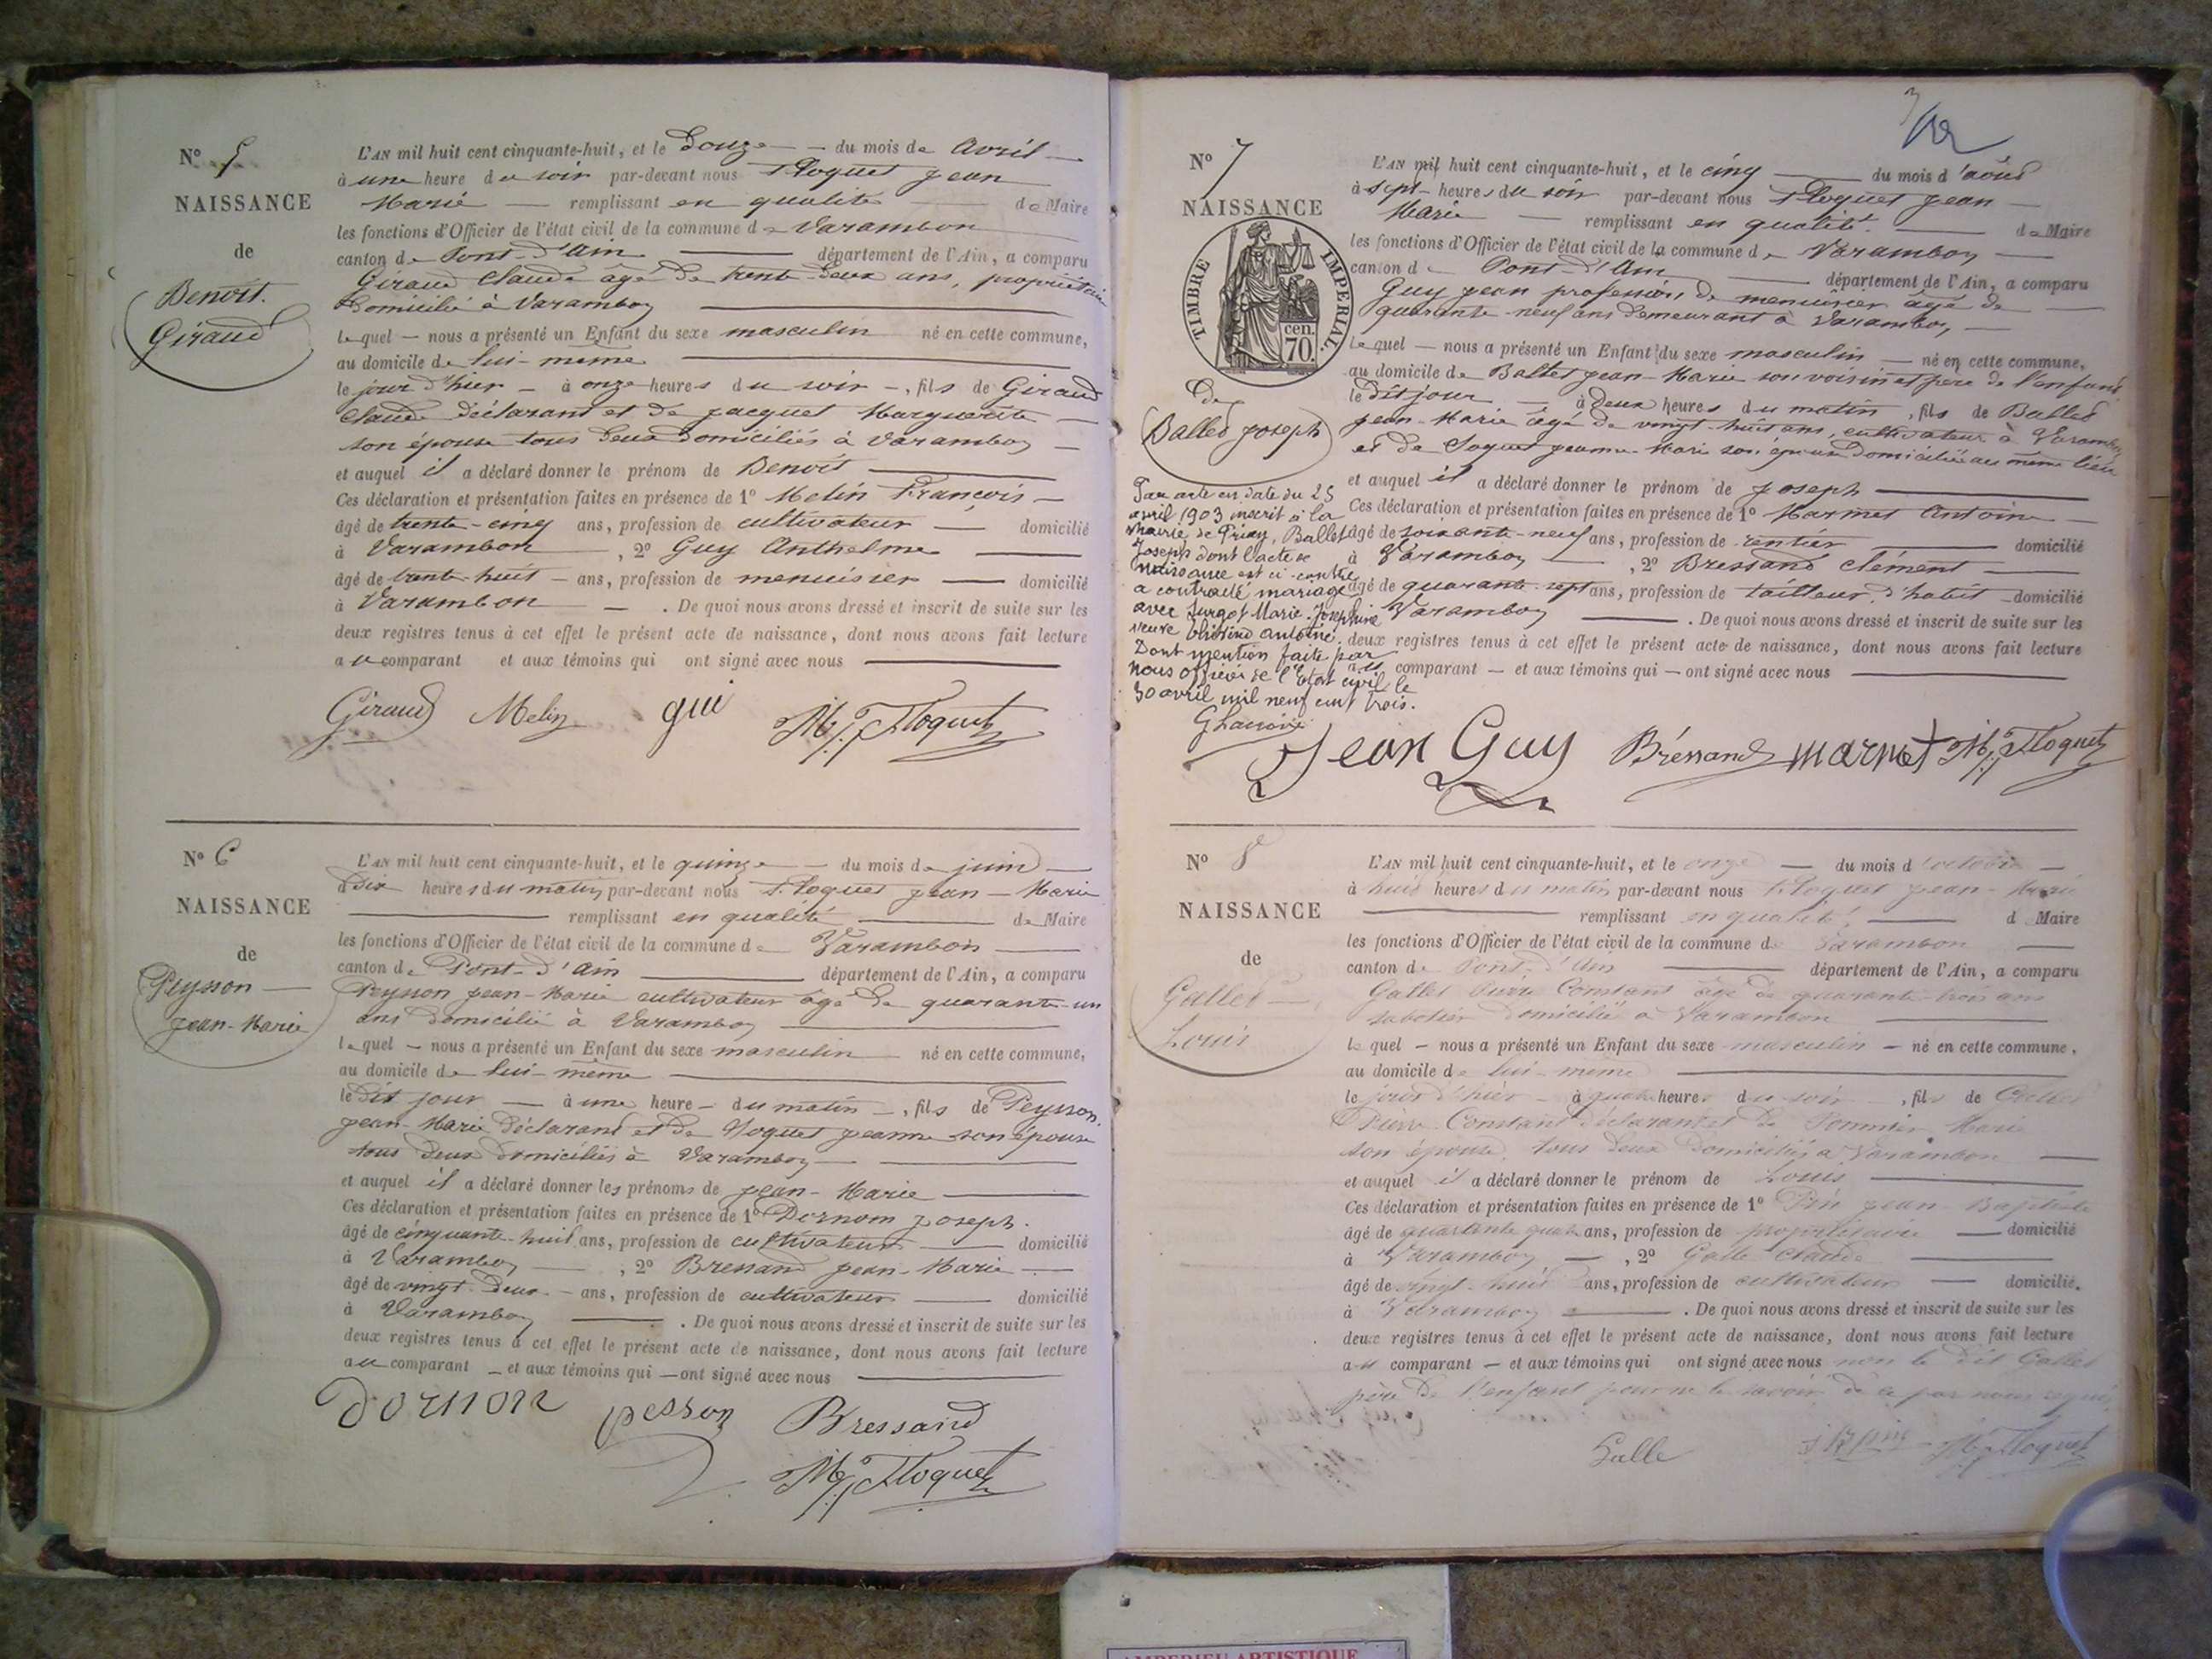 N° 5
NAISSANCE
de
Benoit
Giraud
L'AN mil huit cent cinquante-huit, et le Douze — du mois de Avril —
à une heure du soir par-devant nous Floquet jean
Marie — remplissant en qualité — de Maire
les fonctions d'Officier de l'état civil de la commune de Varambon
canton de Pont-d'Ain — département de l'Ain, a comparu
Giraud Claude âgé de trente-deux ans, propriétaire
Domicilié à Varambon —
lequel — nous a présenté un Enfant du sexe masculin né en cette commune,
au domicile de lui-même —
le jour d'hier — à onze heures du soir —, fils de Giraud
Claude déclarant et de jacquet Marguerite —
son épouse tous deux domiciliés à Varambon —
et auquel il a déclaré donner le prénom de Benoit —
Ces déclaration et présentation faites en présence de 1° Melin François —
âgé de trente-cinq ans, profession de cultivateur — domicilié
à Varambon —, 2° Guy Anthelme —
âgé de trente-huit — ans, profession de menuisier — domicilié
à Varambon — . De quoi nous avons dressé et inscrit de suite sur les
deux registres tenus à cet effet le présent acte de naissance, dont nous avons fait lecture
au comparant et aux témoins qui ont signé avec nous —
Giraud Melin gui M/J Floquet
N° 6
NAISSANCE
de
Peysson —
jean-Marie
L'AN mil huit cent cinquante-huit, et le quinze — du mois de juin —
à Dix heures du matin par-devant nous Floquet jean-Marie
— remplissant en qualité — de Maire
les fonctions d'Officier de l'état civil de la commune de Varambon —
canton de Pont-d'Ain — département de l'Ain, a comparu
Peysson jean-Marie cultivateur âgé de quarante-un
ans domicilié à Varambon —
lequel — nous a présenté un Enfant du sexe masculin né en cette commune,
au domicile de lui-même —
le dit jour — à une heure — du matin —, fils de Peysson
jean-Marie déclarant et de Floquet jeanne son épouse
tous deux domiciliés à Varambon —
et auquel il a déclaré donner les prénoms de jean-Marie —
Ces déclaration et présentation faites en présence de 1° Dornom joseph.
âgé de cinquante-huit ans, profession de cultivateur — domicilié
à Varambon —, 2° Bressand jean-Marie —
âgé de vingt-deux — ans, profession de cultivateur — domicilié
à Varambon — . De quoi nous avons dressé et inscrit de suite sur les
deux registres tenus à cet effet le présent acte de naissance, dont nous avons fait lecture
au comparant — et aux témoins qui — ont signé avec nous —
dornon pesson Bressand
M/J Floquet
3
N° 7
NAISSANCE
TIMBRE IMPERIAL.
cen.
70.
de
Ballet joseph
Par acte en date du 25
avril 1903 inscrit à la
mairie de Priay, Ballet
Joseph dont l'acte de
naissance est ci-contre
a contracté mariage
avec Surgot Marie-Joséphine
veuve antoine.
Dont mention faite par
nous officier de l'Etat civil le
30 avril mil neuf cent trois.
L'AN mil huit cent cinquante-huit, et le cinq — du mois d'août
à sept heures du soir par-devant nous Floquet jean —
Marie — remplissant en qualité — de Maire
les fonctions d'Officier de l'état civil de la commune de Varambon —
canton de Pont-d'Ain — département de l'Ain, a comparu
Guy jean profession de menuisier âgé de —
quarante-neuf ans demeurant à Varambon —
lequel — nous a présenté un Enfant du sexe masculin — né en cette commune,
au domicile de Ballet jean-Marie son voisin et père de l'enfant
le dit jour — à deux heures du matin, fils de Ballet
jean-Marie âgé de vingt-huit ans, cultivateur à Varambon
et de Floquet jeanne-Marie son épouse domiciliée au même lieu
et auquel il a déclaré donner le prénom de joseph —
Ces déclaration et présentation faites en présence de 1° Marmet Antoine —
âgé de soixante-neuf ans, profession de rentier — domicilié
à Varambon —, 2° Bressand clément —
âgé de quarante-sept ans, profession de tailleur d'habit — domicilié
Varambon — . De quoi nous avons dressé et inscrit de suite sur les
deux registres tenus à cet effet le présent acte de naissance, dont nous avons fait lecture
au comparant — et aux témoins qui — ont signé avec nous —
Jean Guy Bressand marmet M/J Floquet
N° 8
NAISSANCE
de
Gallet —
Louis
L'AN mil huit cent cinquante-huit, et le onze — du mois d'octobre —
à huit heures du matin par-devant nous Floquet jean-Marie
— remplissant en qualité — d Maire
les fonctions d'Officier de l'état civil de la commune de Varambon —
canton de Pont-d'Ain — département de l'Ain, a comparu
Gallet Pierre Constant âgé de quarante-trois ans
sabotier domicilié à Varambon —
lequel — nous a présenté un Enfant du sexe masculin — né en cette commune,
au domicile de lui-même —
le jour d'hier — à quatre heures du soir —, fils de Gallet
Pierre Constant déclarant et de Pommier Marie
son épouse, tous deux domiciliés à Varambon —
et auquel il a déclaré donner le prénom de Louis —
Ces déclaration et présentation faites en présence de 1° Pin jean-Baptiste
âgé de quarante-quatre ans, profession de propriétaire — domicilié
à Varambon —, 2° Galle claude —
âgé de vingt-huit ans, profession de cultivateur — domicilié.
à Varambon — . De quoi nous avons dressé et inscrit de suite sur les
deux registres tenus à cet effet le présent acte de naissance, dont nous avons fait lecture
au comparant — et aux témoins qui ont signé avec nous non le dit Gallet
père de l'enfant pour ne le savoir de ce par nous requis
Galle J B Pin M/J Floquet
AMPERIEU ARTISTIQUE